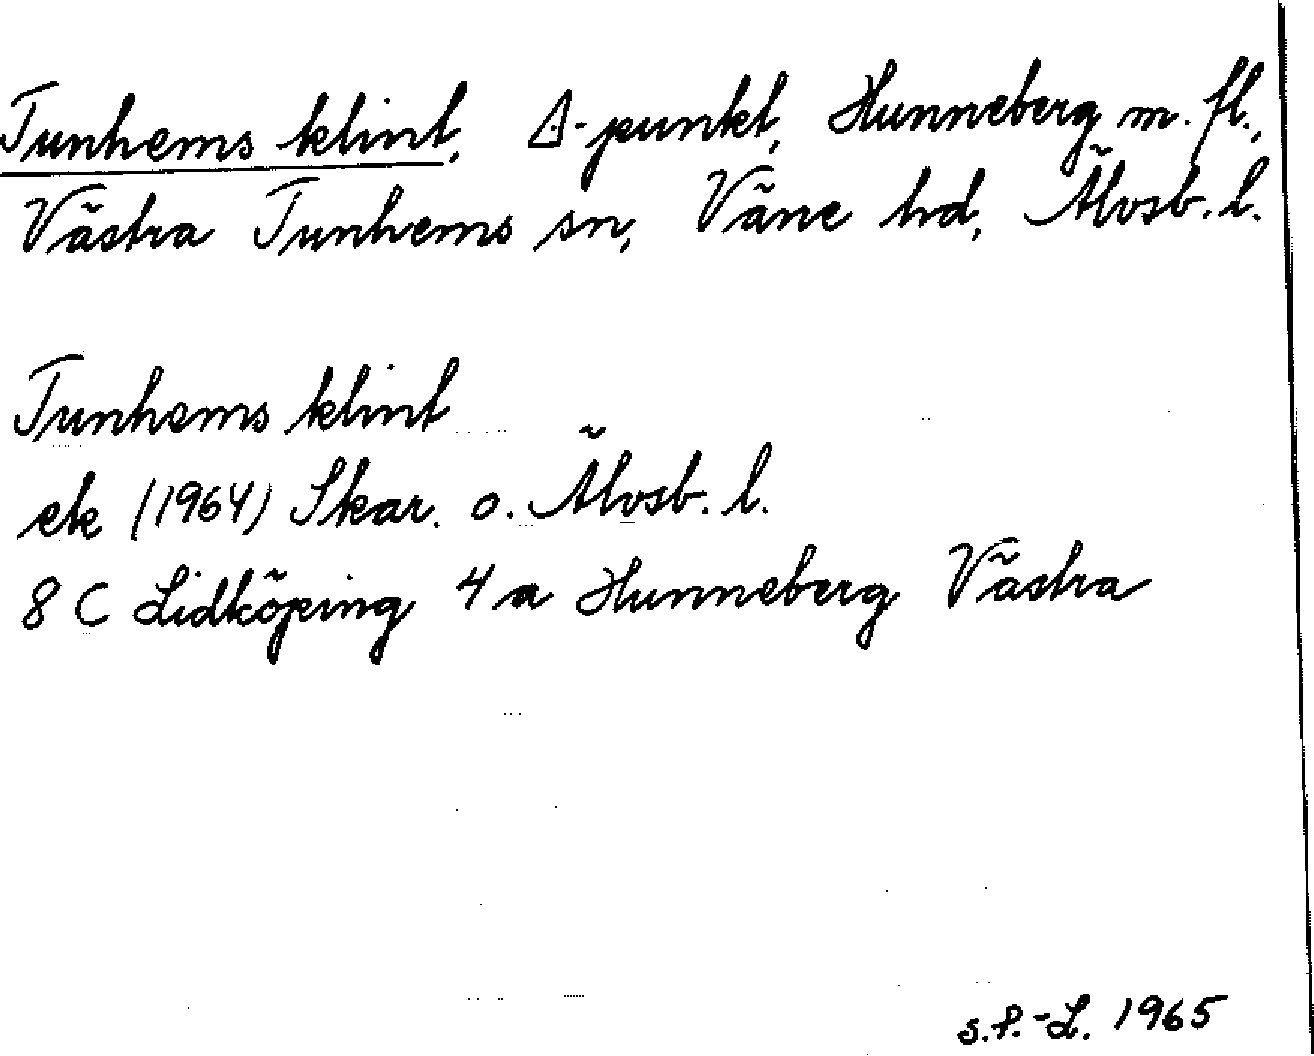 Tunhems klint, Δ-punkt, Hunneberg m. fl.,
Västra Tunhems sn, Väne hd, Älvsb. l.
Tunhems klint
ek (1964) Skar. o. Älvsb. l.
8 C Lidköping 4 a Hunneberg Västra
S.F.-L. 1965